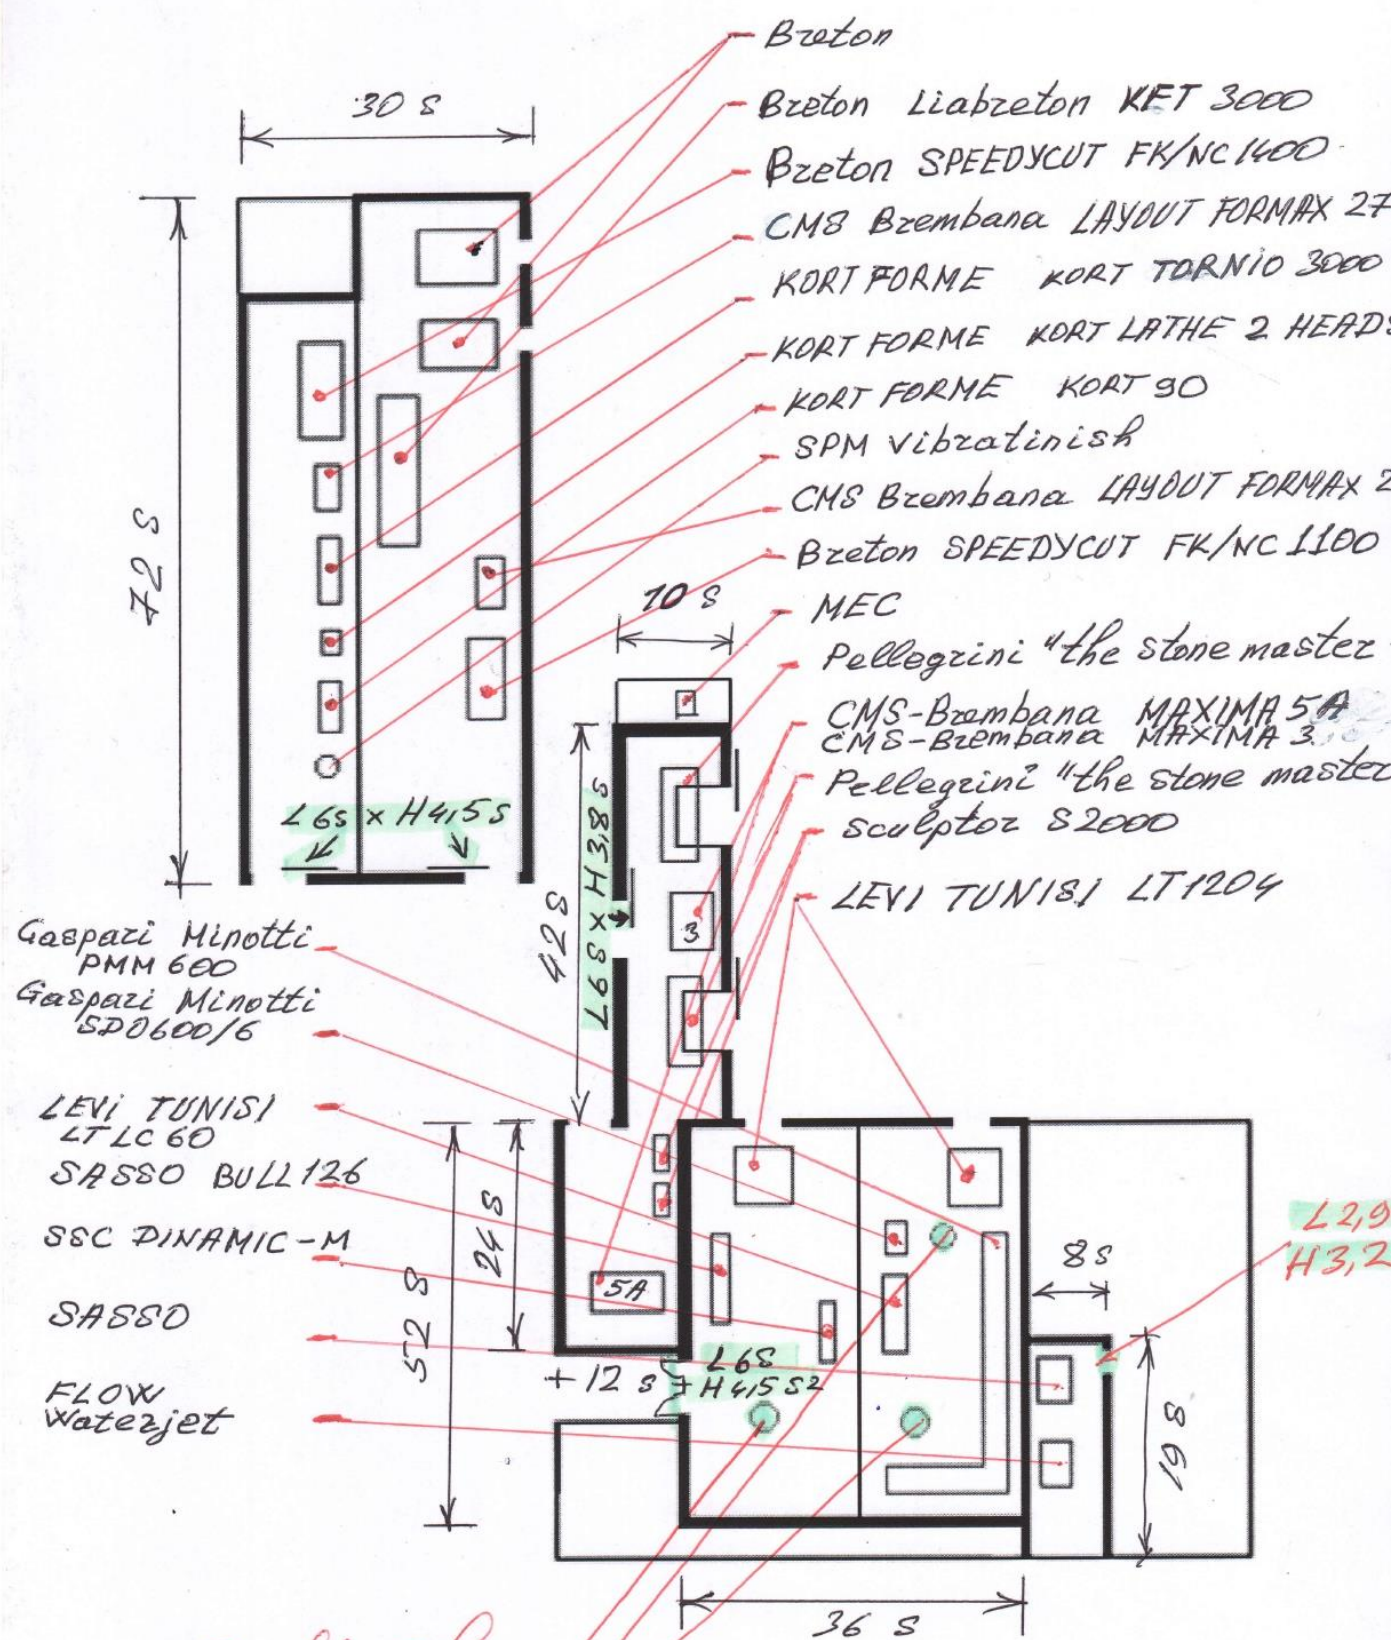 Breton
30 s
Breton Liabreton KFT 3000
Breton SPEEDYCUT FK/NC 1400
CMS Brembana LAYOUT FORMAX 27
KORT FORME KORT TORNIO 3000
KORT FORME KORT LATHE 2 HEADS
KORT FORME KORT 90
SPM Vibratinish
CMS Brembana LAYOUT FORMAX 2
Breton SPEEDYCUT FK/NC 1100
72 s
10 s
MEC
Pellegrini "the stone master
CMS-Brembana MAXIMA 5A
CMS-Brembana MAXIMA 3
Pellegrini "the stone master
sculptor S2000
L6s x H4,5s
LEVI TUNISI LT1204
42 s
L97 s x H3,8 s
3
Gaspari Minotti
PMM 600
Gaspari Minotti
SDO600/6
LEVI TUNISI
LT LC 60
SASSO BULL 126
SSC DINAMIC-M
SASSO
FLOW
Waterjet
24 s
52 s
5A
+12 s
L6s
+ H4,5 s2
8 s
L2,9
H3,2
19 s
36 s